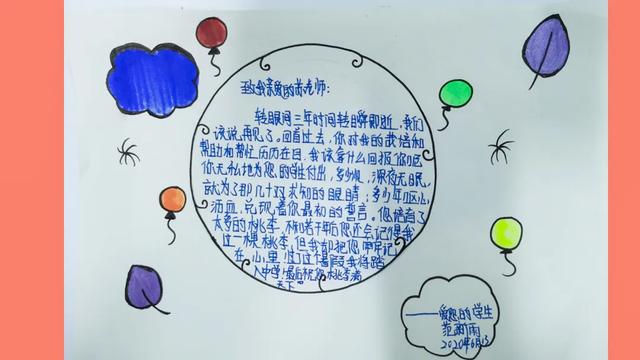 致我亲爱的苏老师:
转眼间三年时间转瞬即逝,我们
该说再见了。回首过去,你对我的栽培和
帮助和帮忙历历在目,我该拿什么回报你呢
你无私地为您的学生付出,多少夜,深夜无眠,
就为了那几十双求知的眼睛;多少年呕心
沥血,兑现着你最初的誓言。您培育了
太多的桃李,不知若干年后您还会记得我
这一棵桃李,但我却把您牢牢记
在心里,过了这个暑假我将踏
入中学!最后祝您桃李满
天下
——爱您的学生
范雨
2020年6月13